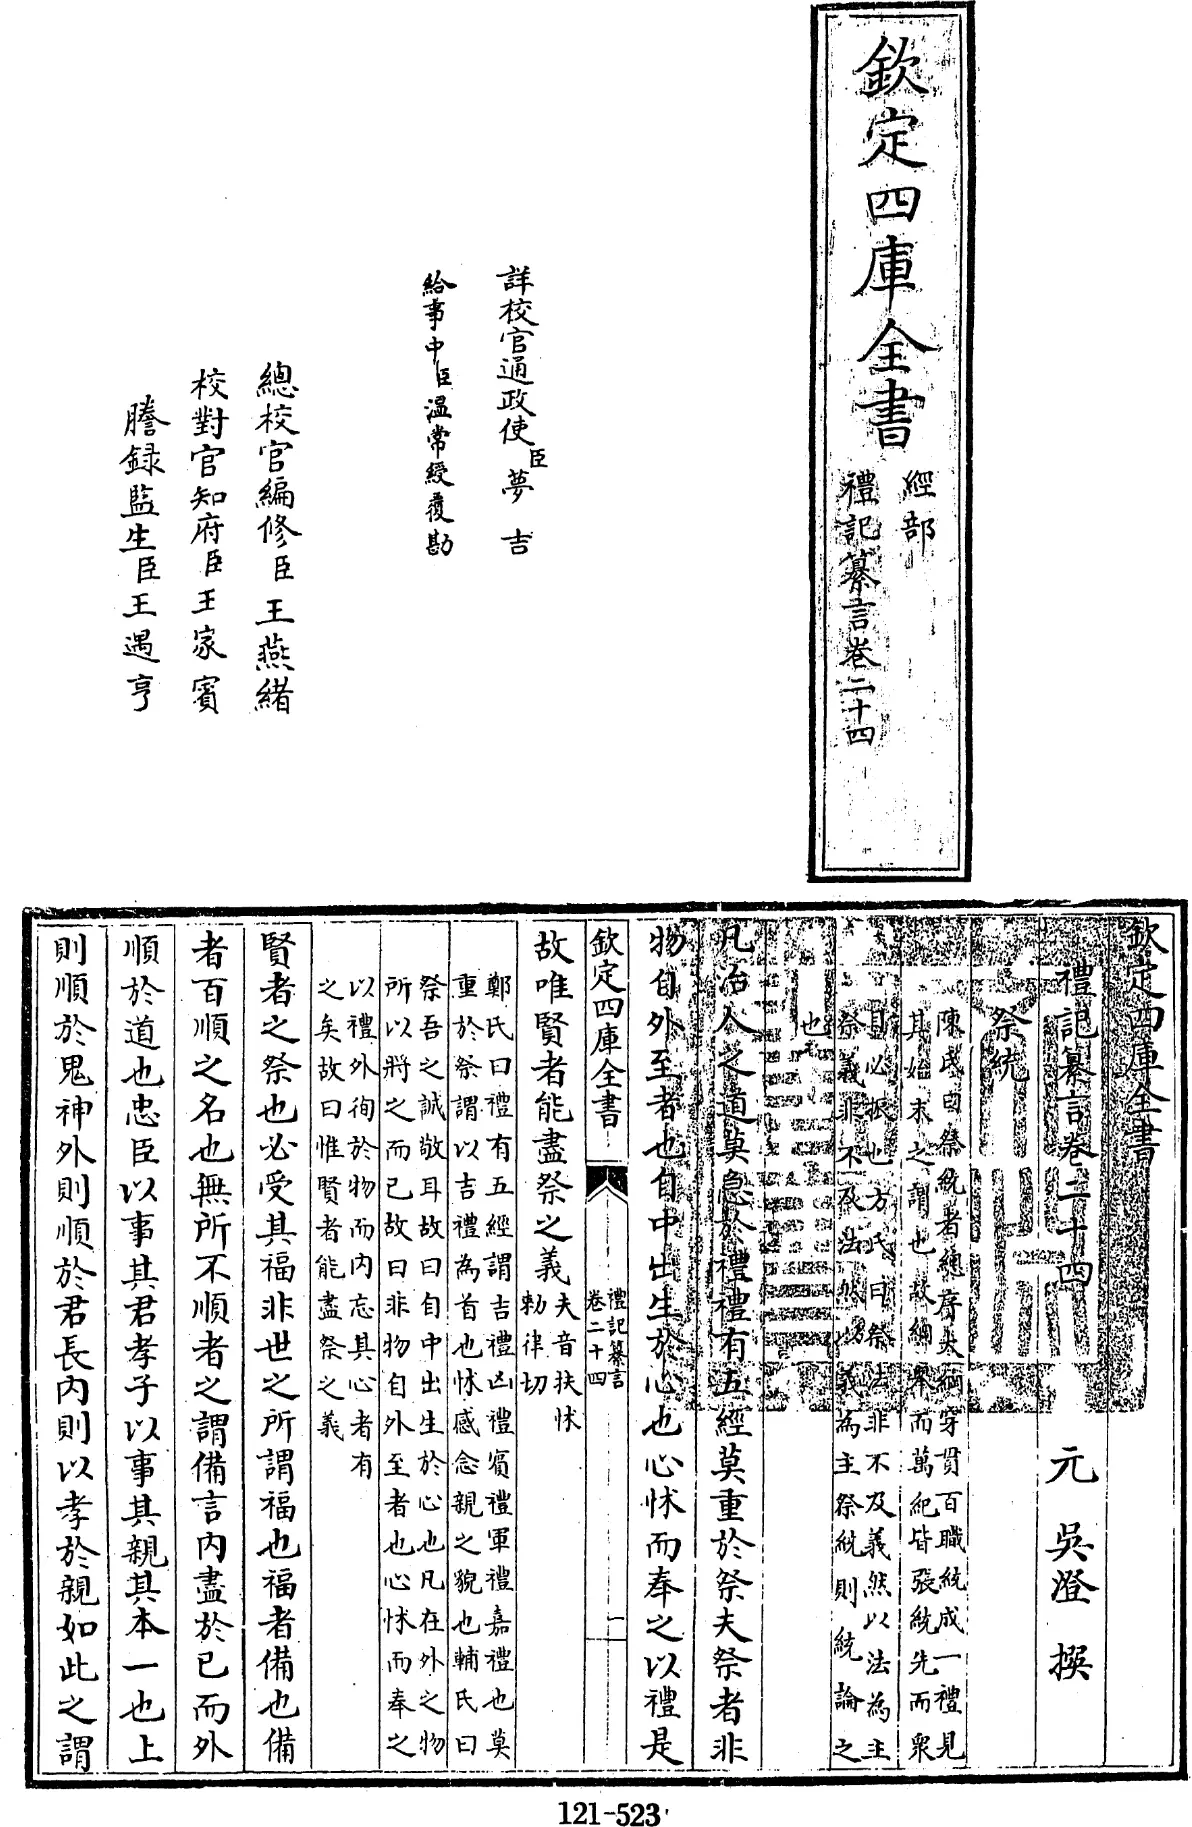 欽定四庫全書
經部
禮記纂言卷二十四
詳校官通政使臣夢吉
給事中臣溫常綬覆勘
總校官編修臣王燕緒
校對官知府臣王家賓
謄録監生臣王遇亨
欽定四庫全書
禮記纂言卷二十四
元 吳澄 撰
祭統
陳氏曰祭統者總序大綱穿貫百職統成一禮見
其始末之謂也故綱舉而萬紀皆張統先而衆
目必振也方氏曰祭法非不及義然以法為主
祭義非不及法然以義為主祭統則統論之
也
凡治人之道莫急於禮禮有五經莫重於祭夫祭者非
物自外至者也自中出生於心也心怵而奉之以禮是
欽定四庫全書
禮記纂言
卷二十四
一
故唯賢者能盡祭之義
夫音扶怵
勑律切
鄭氏曰禮有五經謂吉禮凶禮賓禮軍禮嘉禮也莫
重於祭謂以吉禮為首也怵感念親之貌也輔氏曰
祭吾之誠敬耳故曰自中出生於心也凡在外之物
所以將之而已故曰非物自外至者也心怵而奉之
以禮外徇於物而内忘其心者有
之矣故曰惟賢者能盡祭之義
賢者之祭也必受其福非世之所謂福也福者備也備
者百順之名也無所不順者之謂備言内盡於已而外
順於道也忠臣以事其君孝子以事其親其本一也上
則順於鬼神外則順於君長内則以孝於親如此之謂
121-523